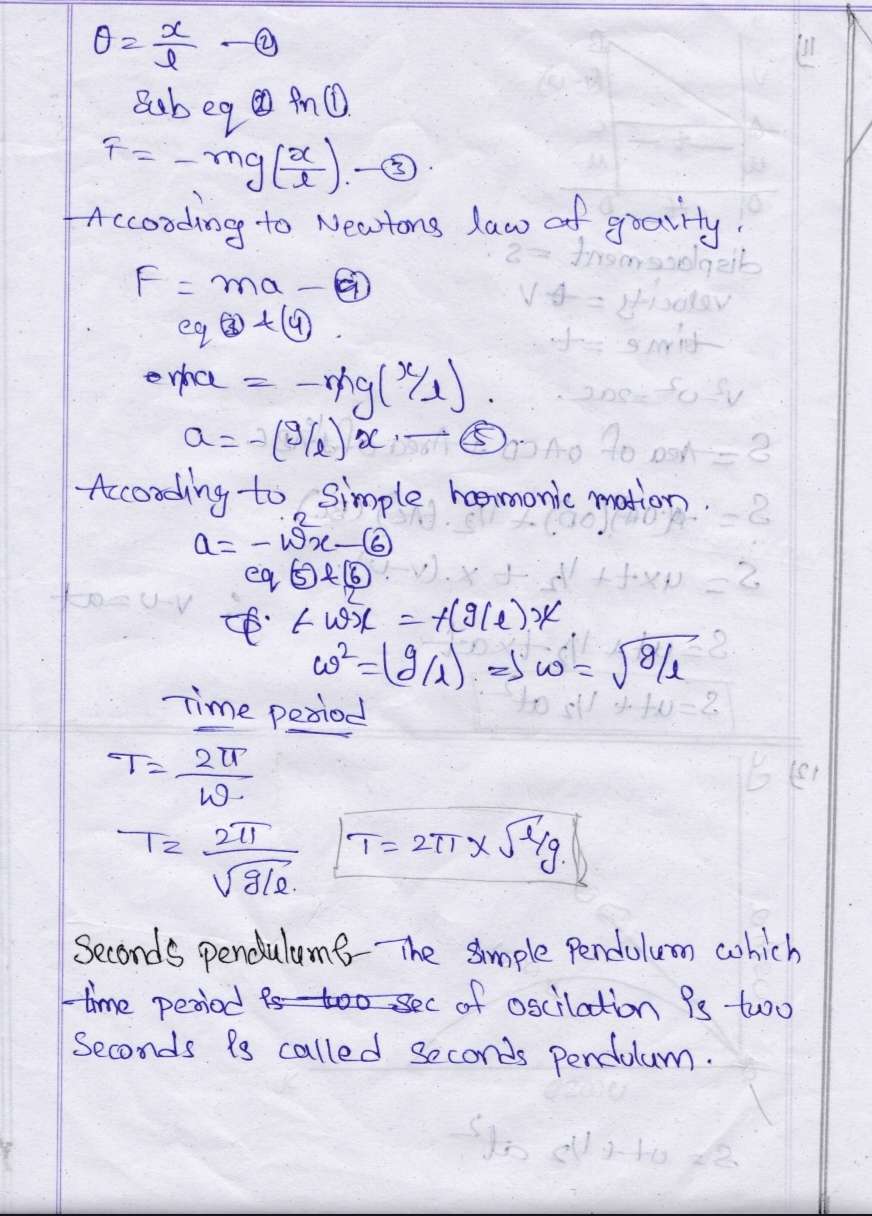 θ = x/l —②
Sub eq ② in ①.
F = - mg(x/l). —③.
According to Newtons law of gravity.
F = ma —④
eq ③ & ④.
ma = -mg(x/l).
a = -(g/l)x. —⑤.
According to Simple harmonic motion.
a = - ω²x —⑥
eq ⑤ & ⑥.
+ ω²x = +(g/l)x
ω² = (g/l). ⇒ ω = √g/l
Time period
T = 2π/ω
T = 2π/√g/l. T = 2π × √l/g.
Seconds pendulum:- The Simple Pendulum which
time period is too sec of oscilation is two
Seconds is called Seconds pendulum.